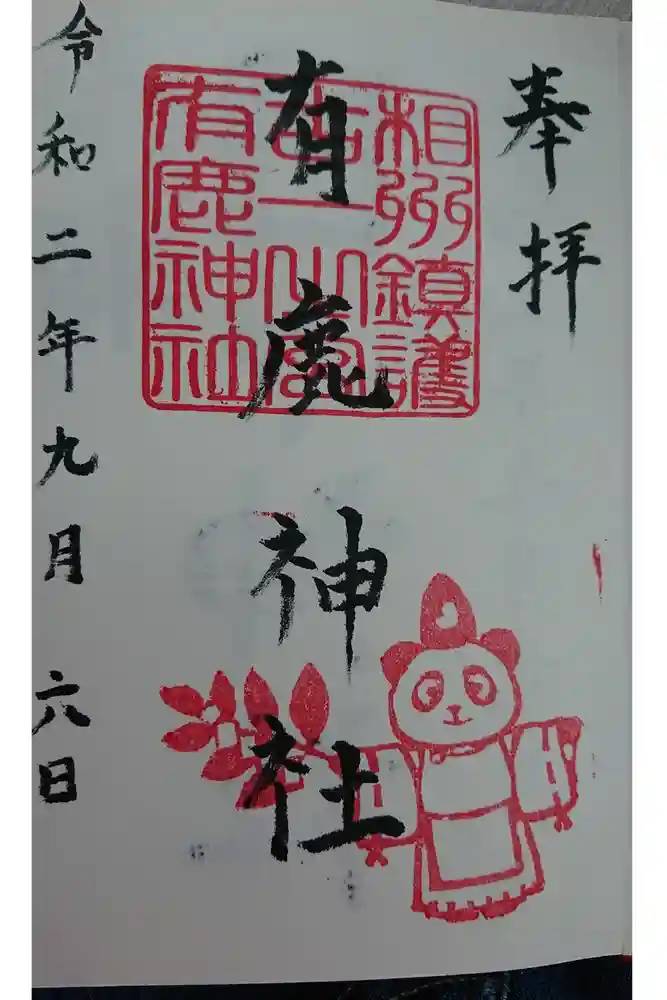 奉拝
相州鎮護
一之宮
有鹿神社
有鹿神社
令和二年九月六日